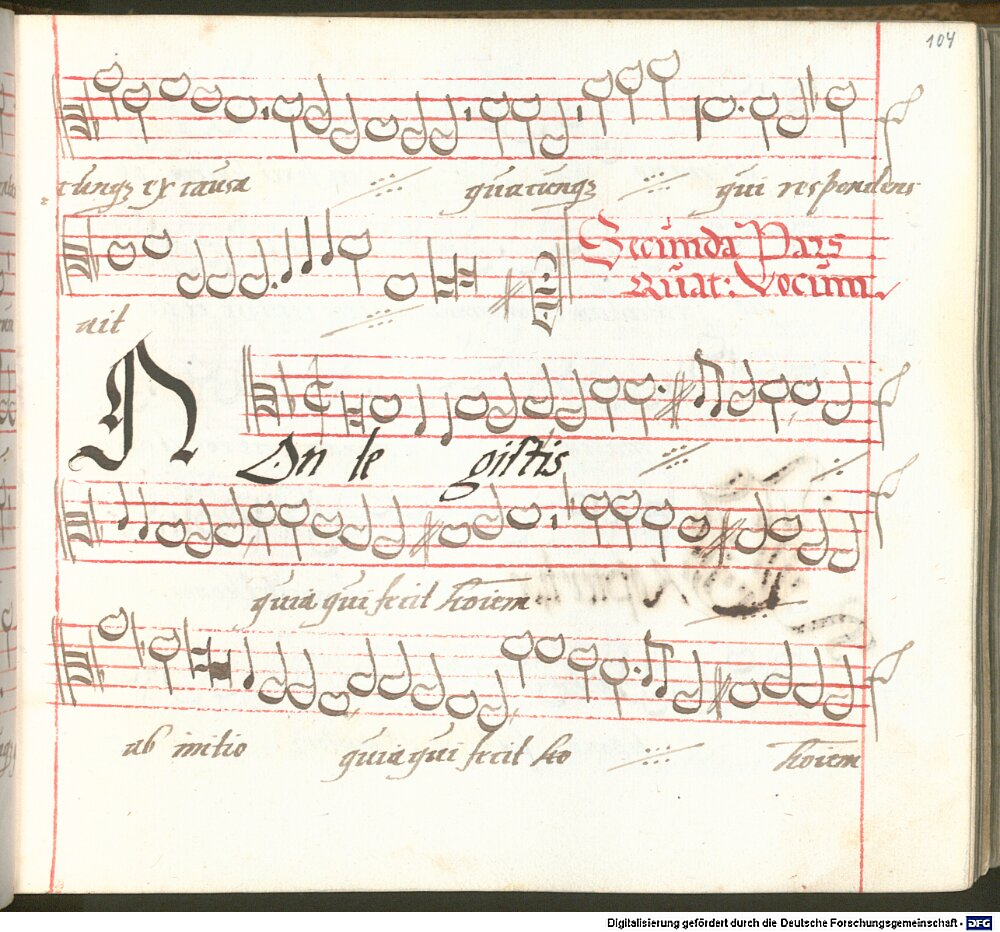 104
cunqȝ ex causa quacunqȝ qui respondens
Secunda Pars
Quat: Vocum.
ait
NOn le gistis
quia qui fecit hoiem
ab initio quia qui fecit ho hoiem
Digitalisierung gefördert durch die Deutsche Forschungsgemeinschaft - DFG